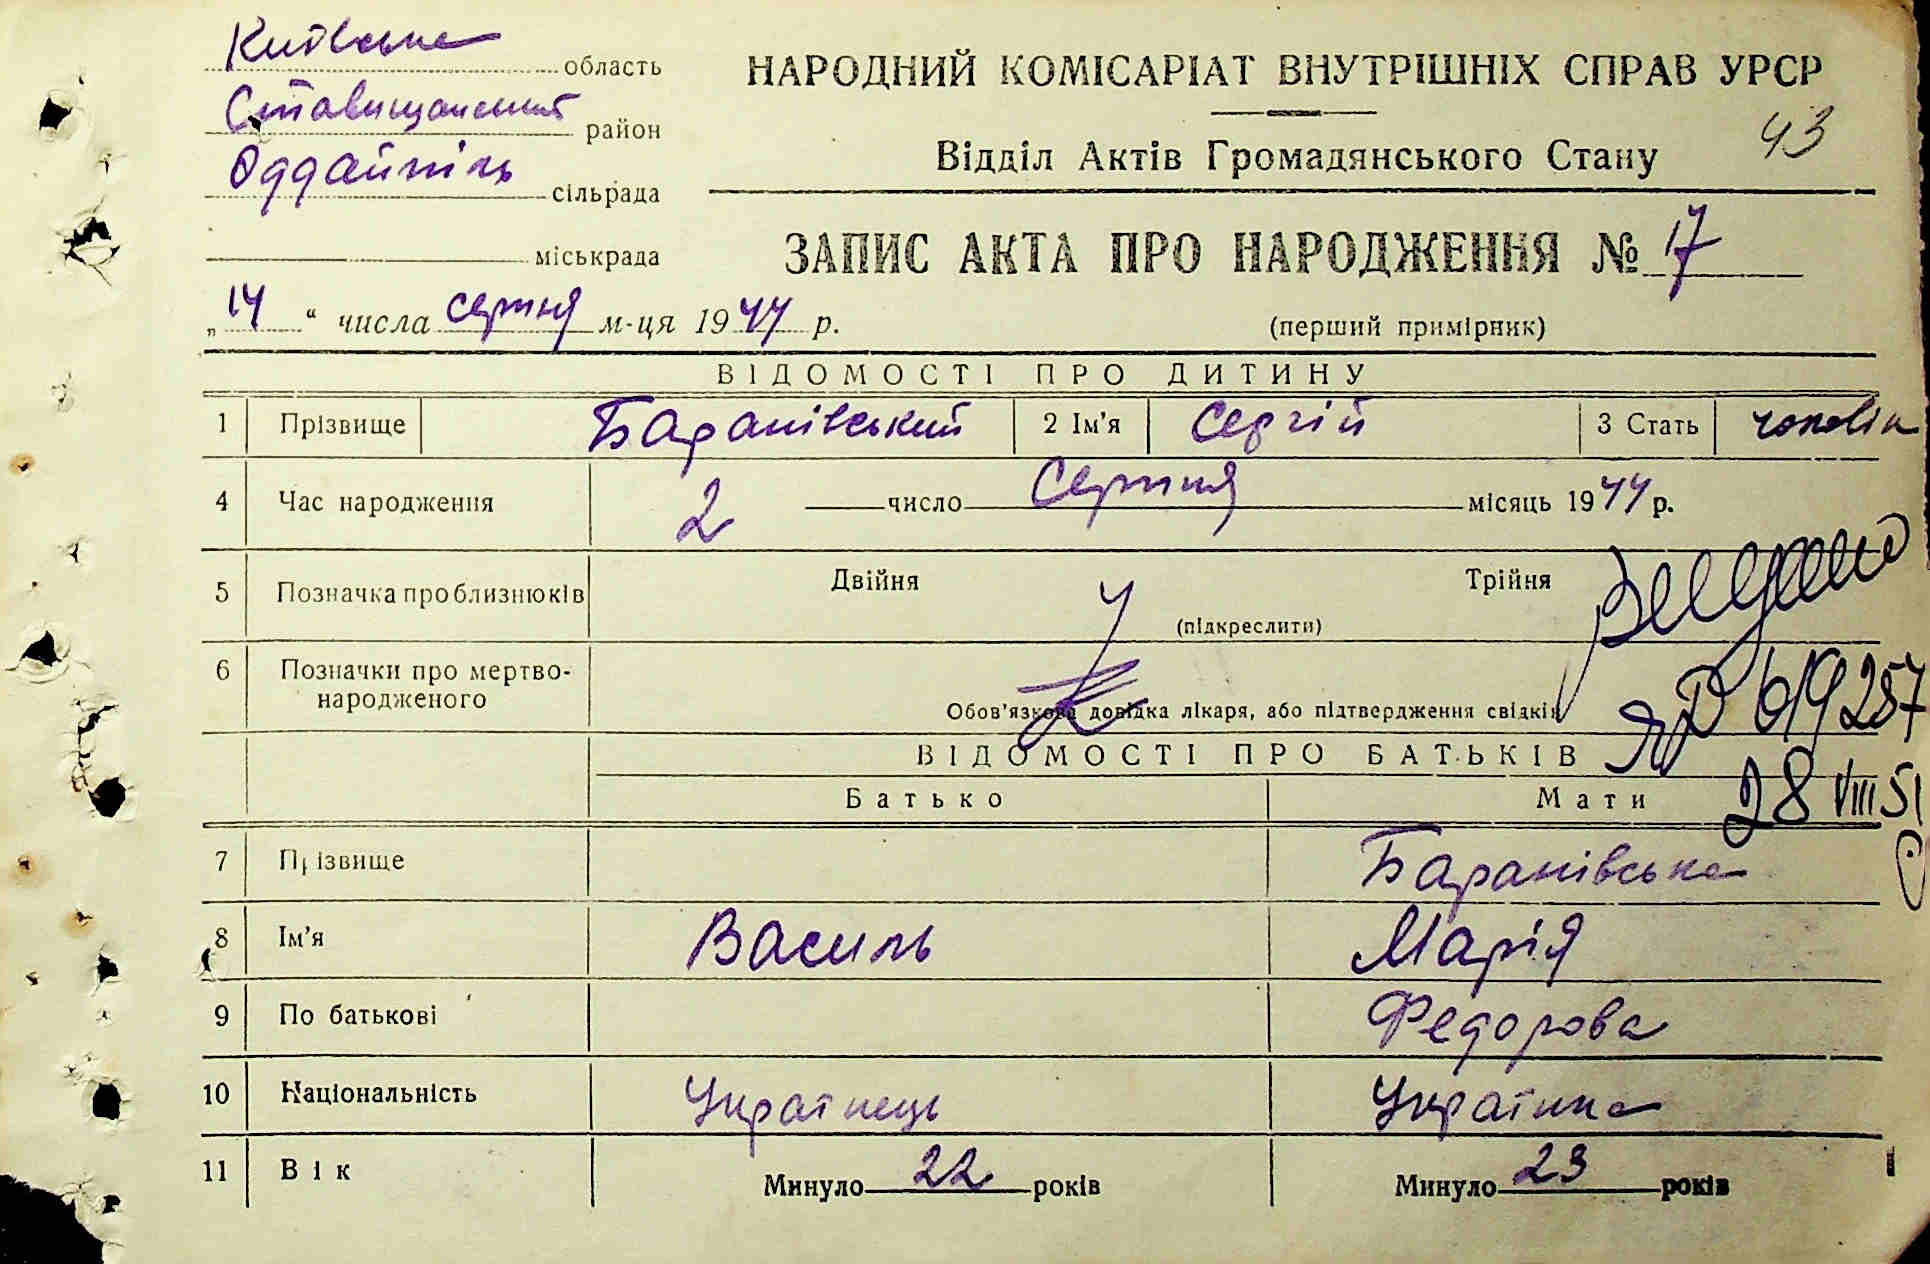 Київська область
Ставищанський район
Оддайпіль сільрада
міськрада
„14“ числа серпня м-ця 1944 р.
НАРОДНИЙ КОМІСАРІАТ ВНУТРІШНІХ СПРАВ УРСР
Відділ Актів Громадянського Стану
43
ЗАПИС АКТА ПРО НАРОДЖЕННЯ № 17
(перший примірник)
ВІДОМОСТІ ПРО ДИТИНУ
1 Прізвище Баранівський 2 Ім'я Сергій 3 Стать чоловік
4 Час народження 2 число Серпня місяць 1944 р.
5 Позначка про близнюків Двійня Трійня
(підкреслити)
6 Позначки про мертво-
народженого
Обов'язкова довідка лікаря, або підтвердження свідків
ЯР 619257
ВІДОМОСТІ ПРО БАТЬКІВ
Батько Мати
28 VIII 51
7 Прізвище Баранівська
8 Ім'я Василь Марія
9 По батькові Федорова
10 Національність Українець Українка
11 Вік Минуло 22 років Минуло 23 років